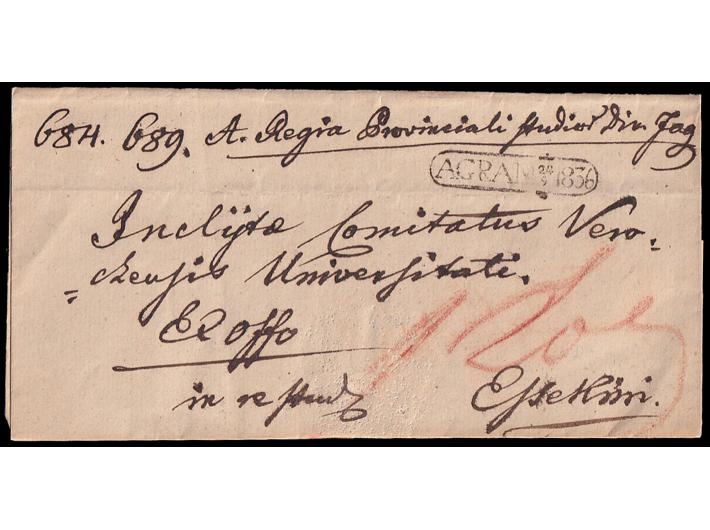 684. 689. A. Regia Provinciali studior Din. Zag
AGRAM 24/9 1836
Inclÿtæ Comitatus Vero-
=czensis Universitati.
Ex offo
in re stud
Essekini.